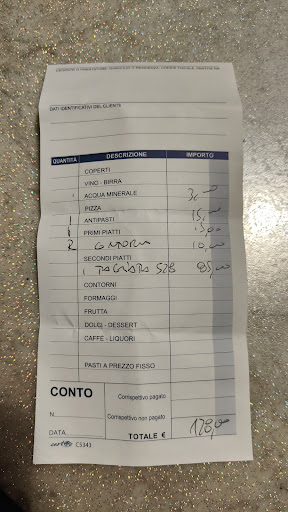 DATI IDENTIFICATIVI DEL CLIENTE
QUANTITÀ DESCRIZIONE IMPORTO
COPERTI
VINO - BIRRA
ACQUA MINERALE
PIZZA 15,00
1 ANTIPASTI
1 PRIMI PIATTI 15,00
2 CONTORNI 10,00
SECONDI PIATTI
1 TAGLIATA 528 85,00
CONTORNI
FORMAGGI
FRUTTA
DOLCI - DESSERT
CAFFÈ - LIQUORI
PASTI A PREZZO FISSO
CONTO
Corrispettivo pagato
N.
Corrispettivo non pagato
DATA
TOTALE €
C5343